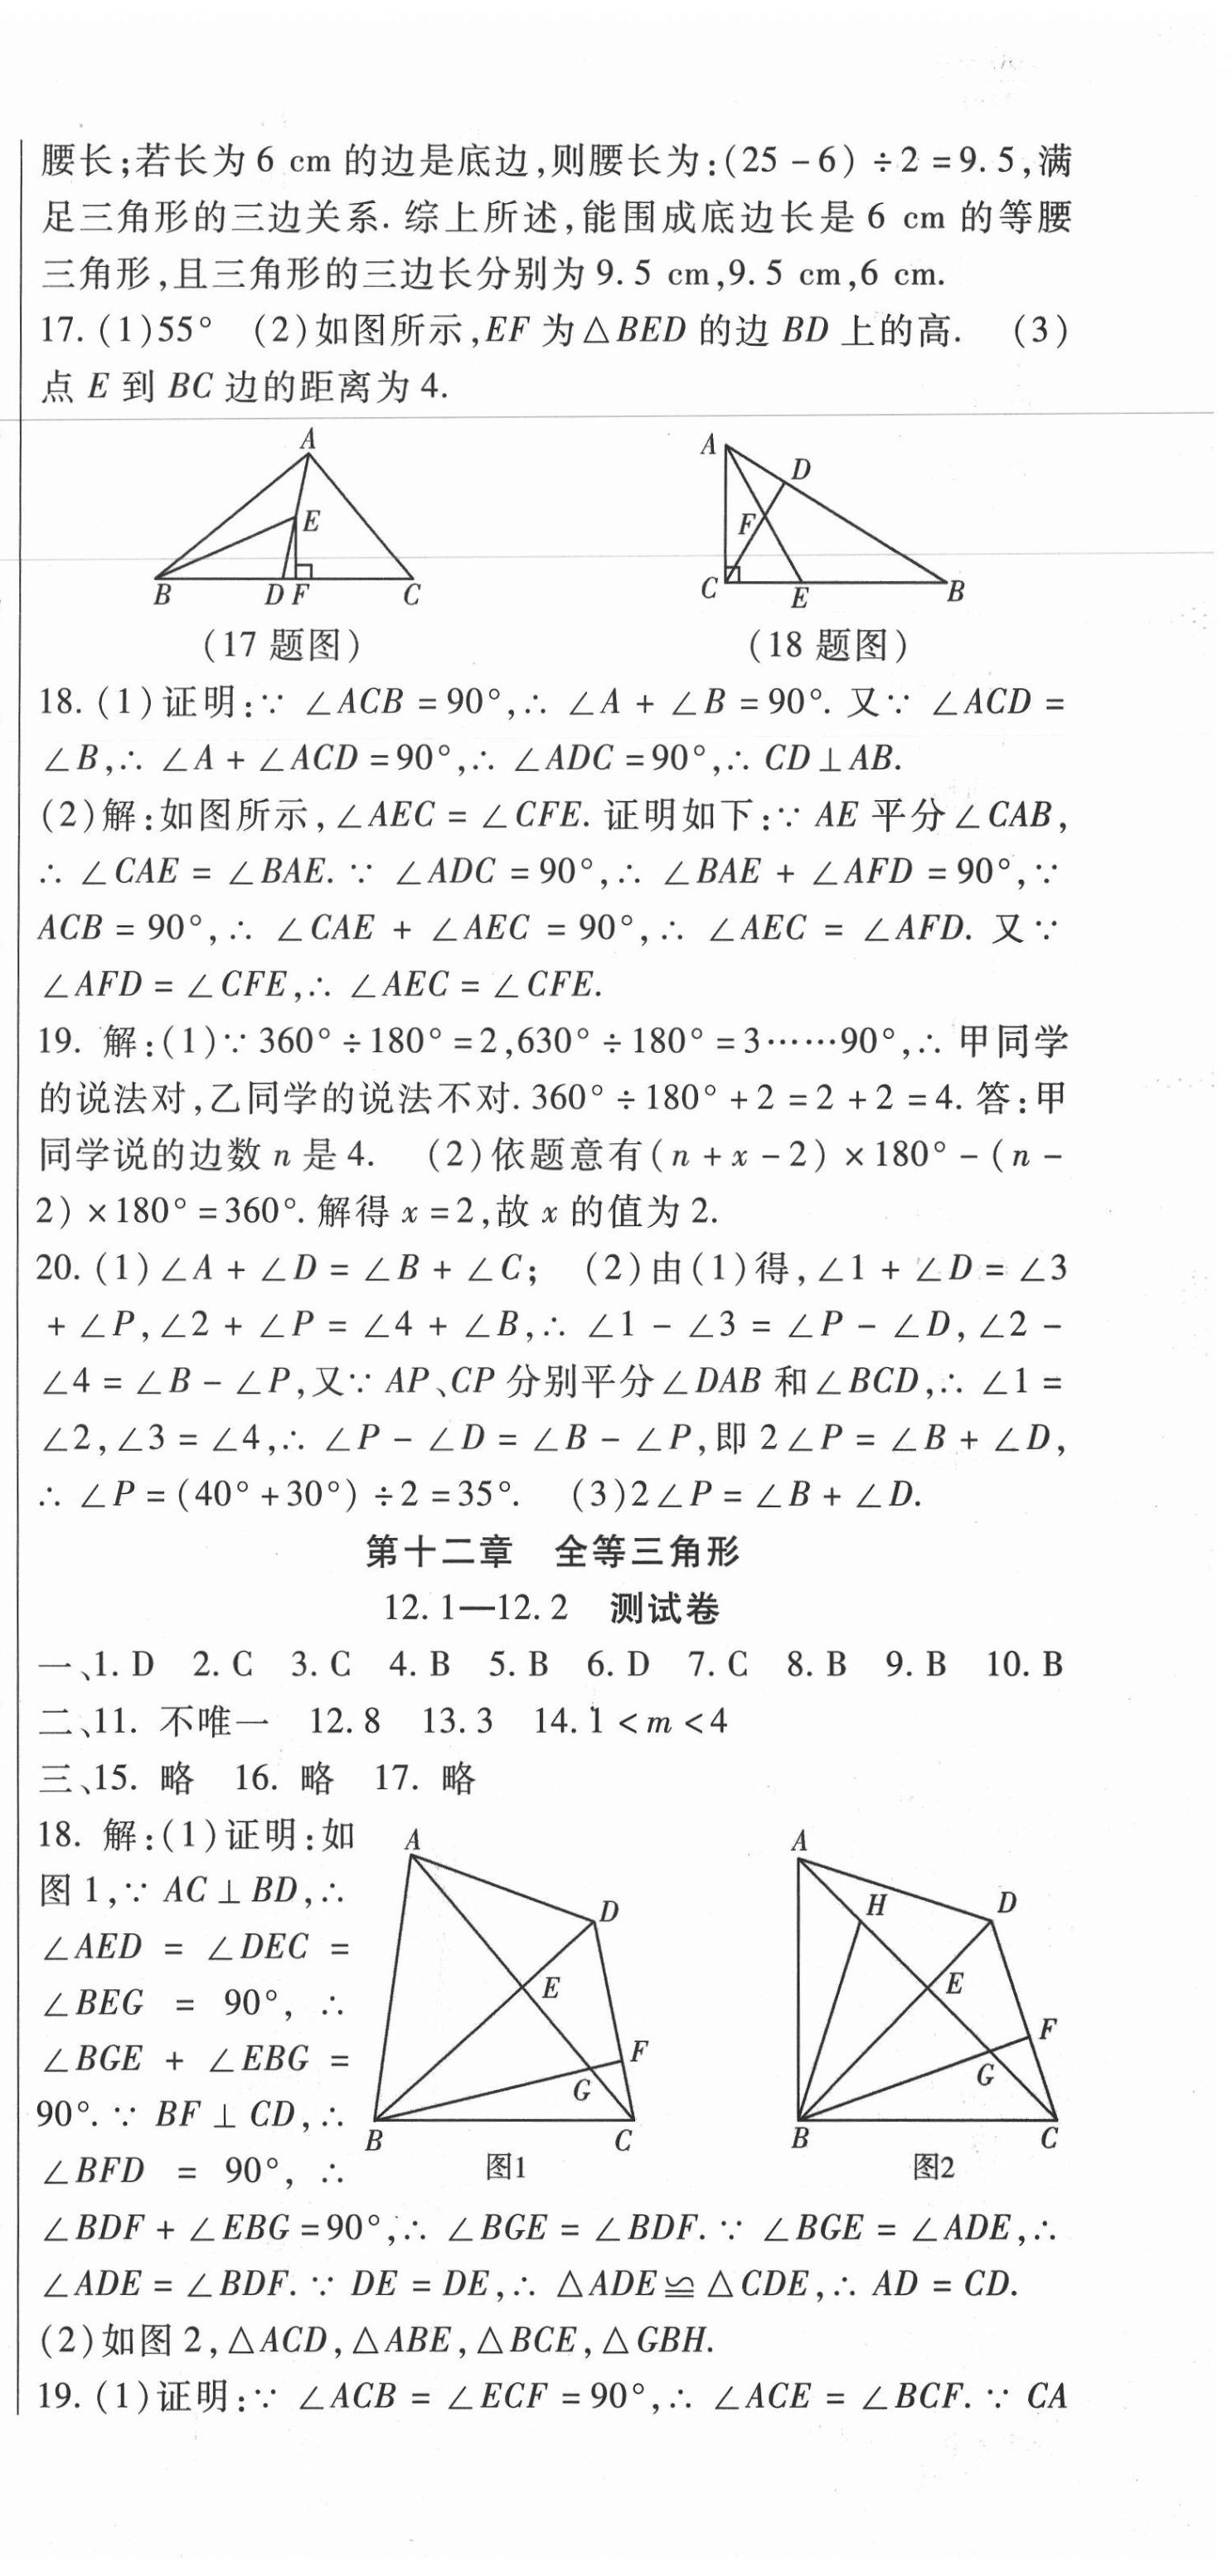 腰长;若长为6 cm 的边是底边,则腰长为:(25-6)÷2=9.5,满
足三角形的三边关系.综上所述,能围成底边长是6 cm 的等腰
三角形,且三角形的三边长分别为9.5 cm,9.5 cm,6 cm.
17.(1)55° (2)如图所示,EF为△BED的边BD上的高. (3)
点E到BC边的距离为4.
A
E
B
D F
C
(17题图)
A
D
F
C
E
B
(18题图)
18.(1)证明:∵ ∠ACB=90°,∴ ∠A+∠B=90°.又∵ ∠ACD=
∠B,∴ ∠A+∠ACD=90°,∴ ∠ADC=90°,∴ CD⊥AB.
(2)解:如图所示,∠AEC=∠CFE.证明如下:∵ AE平分∠CAB,
∴ ∠CAE=∠BAE.∵ ∠ADC=90°,∴ ∠BAE+∠AFD=90°,∵
ACB=90°,∴ ∠CAE+∠AEC=90°,∴ ∠AEC=∠AFD.又∵
∠AFD=∠CFE,∴ ∠AEC=∠CFE.
19. 解:(1)∵ 360°÷180°=2,630°÷180°=3……90°,∴ 甲同学
的说法对,乙同学的说法不对.360°÷180°+2=2+2=4.答:甲
同学说的边数n是4. (2)依题意有(n+x-2)×180°-(n-
2)×180°=360°.解得x=2,故x的值为2.
20.(1)∠A+∠D=∠B+∠C; (2)由(1)得,∠1+∠D=∠3
+∠P,∠2+∠P=∠4+∠B,∴ ∠1-∠3=∠P-∠D,∠2-
∠4=∠B-∠P,又∵ AP、CP分别平分∠DAB和∠BCD,∴ ∠1=
∠2,∠3=∠4,∴ ∠P-∠D=∠B-∠P,即2∠P=∠B+∠D,
∴ ∠P=(40°+30°)÷2=35°. (3)2∠P=∠B+∠D.
第十二章 全等三角形
12.1—12.2 测试卷
一、1. D 2. C 3. C 4. B 5. B 6. D 7. C 8. B 9. B 10. B
二、11. 不唯一 12. 8 13. 3 14. 1<m<4
三、15. 略 16. 略 17. 略
18. 解:(1)证明:如
图1,∵ AC⊥BD,∴
∠AED=∠DEC=
∠BEG=90°,∴
∠BGE+∠EBG=
90°.∵ BF⊥CD,∴
∠BFD=90°,∴
A
D
E
F
G
B
C
图1
A
H
D
E
F
G
B
C
图2
∠BDF+∠EBG=90°,∴ ∠BGE=∠BDF.∵ ∠BGE=∠ADE,∴
∠ADE=∠BDF.∵ DE=DE,∴ △ADE≌△CDE,∴ AD=CD.
(2)如图2,△ACD,△ABE,△BCE,△GBH.
19.(1)证明:∵ ∠ACB=∠ECF=90°,∴ ∠ACE=∠BCF.∵ CA